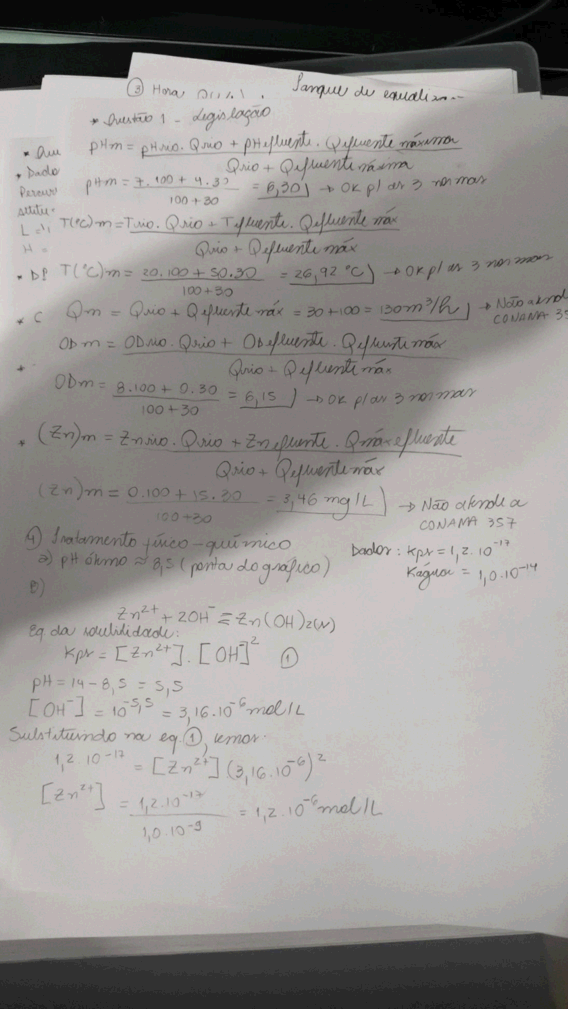 ③ Hora Tanque de equaliza...
* Questão 1 - Legislação
* Qu
* Dado
Percur
L =
H =
* Df
* C
pHm = pHrio . Qrio + pHefluente . Qefluente máxima
Qrio + Qefluente máxima
pHm = 7.100 + 4.30 = 6,30 → OK p/ as 3 normas
100 + 30
T(°C)m = Trio . Qrio + Tefluente . Qefluente máx
Qrio + Qefluente máx
T(°C)m = 20.100 + 50.30 = 26,92 °C → OK p/ as 3 normas
100 + 30
Qm = Qrio + Qefluente máx = 30 + 100 = 130 m³/h → Não atend
CONAMA 35
ODm = ODrio . Qrio + ODefluente . Qefluente máx
Qrio + Qefluente máx
ODm = 8.100 + 0.30 = 6,15 → OK p/ as 3 normas
100 + 30
* (Zn)m = Znrio . Qrio + Znefluente . Qmáx efluente
Qrio + Qefluente máx
(Zn)m = 0.100 + 15.30 = 3,46 mg/L → Não atende a
100 + 30 CONAMA 357
4) Tratamento físico-químico
a) pH ótmo ≈ 8,5 (ponta do gráfico)
Dados: Kps = 1,2.10⁻¹⁷
Kágua = 1,0.10⁻¹⁴
B)
Zn²⁺ + 2OH⁻ ⇌ Zn(OH)₂(s)
Eq da solubilidade:
Kps = [Zn²⁺] . [OH⁻]² ①
pH = 14 - 8,5 = 5,5
[OH⁻] = 10⁻⁵,⁵ = 3,16.10⁻⁶ mol/L
Substituindo na eq ①, temos:
1,2.10⁻¹⁷ = [Zn²⁺] (3,16.10⁻⁶)²
[Zn²⁺] = 1,2.10⁻¹⁷ = 1,2.10⁻⁶ mol/L
1,0.10⁻⁹